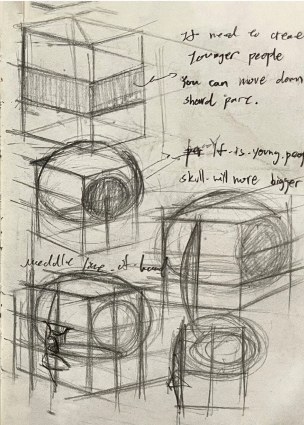 If need to create
Younger people
You can move down
shard part.
If is young peop
skull will more bigger
meddle line of head